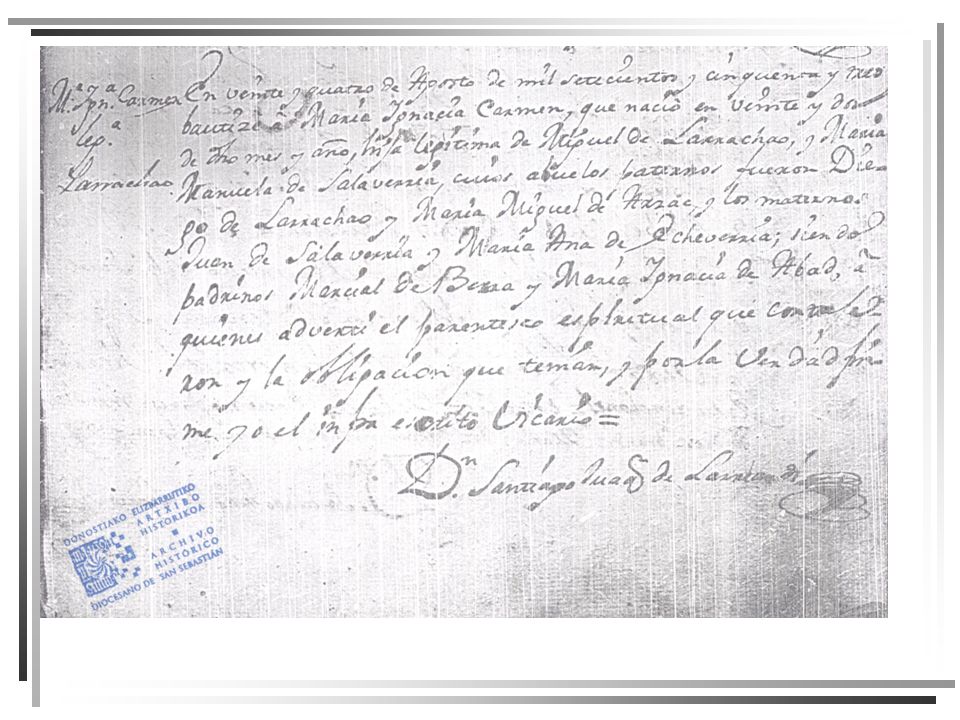 M.ª Ign.ª Carmen
leg.ª
Larrachao
En veinte y quatro de Agosto de mil setecientos y cinquenta y tres
bautize â Maria Ignacia Carmen, que naciò en veinte y dos
de dho mes y año, hija legitima de Miguel de Larrachao, y Maria
Manuela de Salaverria, cuios abuelos paternos fueron Die-
go de Larrachao y Maria Miguel de Arzac, y los maternos
Juan de Salaverria y Maria Ana de Echeverria; siendo
padrinos Marcial de Berra y Maria Ignacia de Abad, â
quienes adverti el parentesco espiritual que contraje-
ron y la obligacion que tenian, y por la verdad fir-
me yo el infraescrito Vicario =
D.n Santiago de
DONOSTIAKO ELIZBARRUTIKO
ARTXIBO
HISTORIKOA
ARCHIVO
HISTÓRICO
DIOCESANO DE SAN SEBASTIÁN